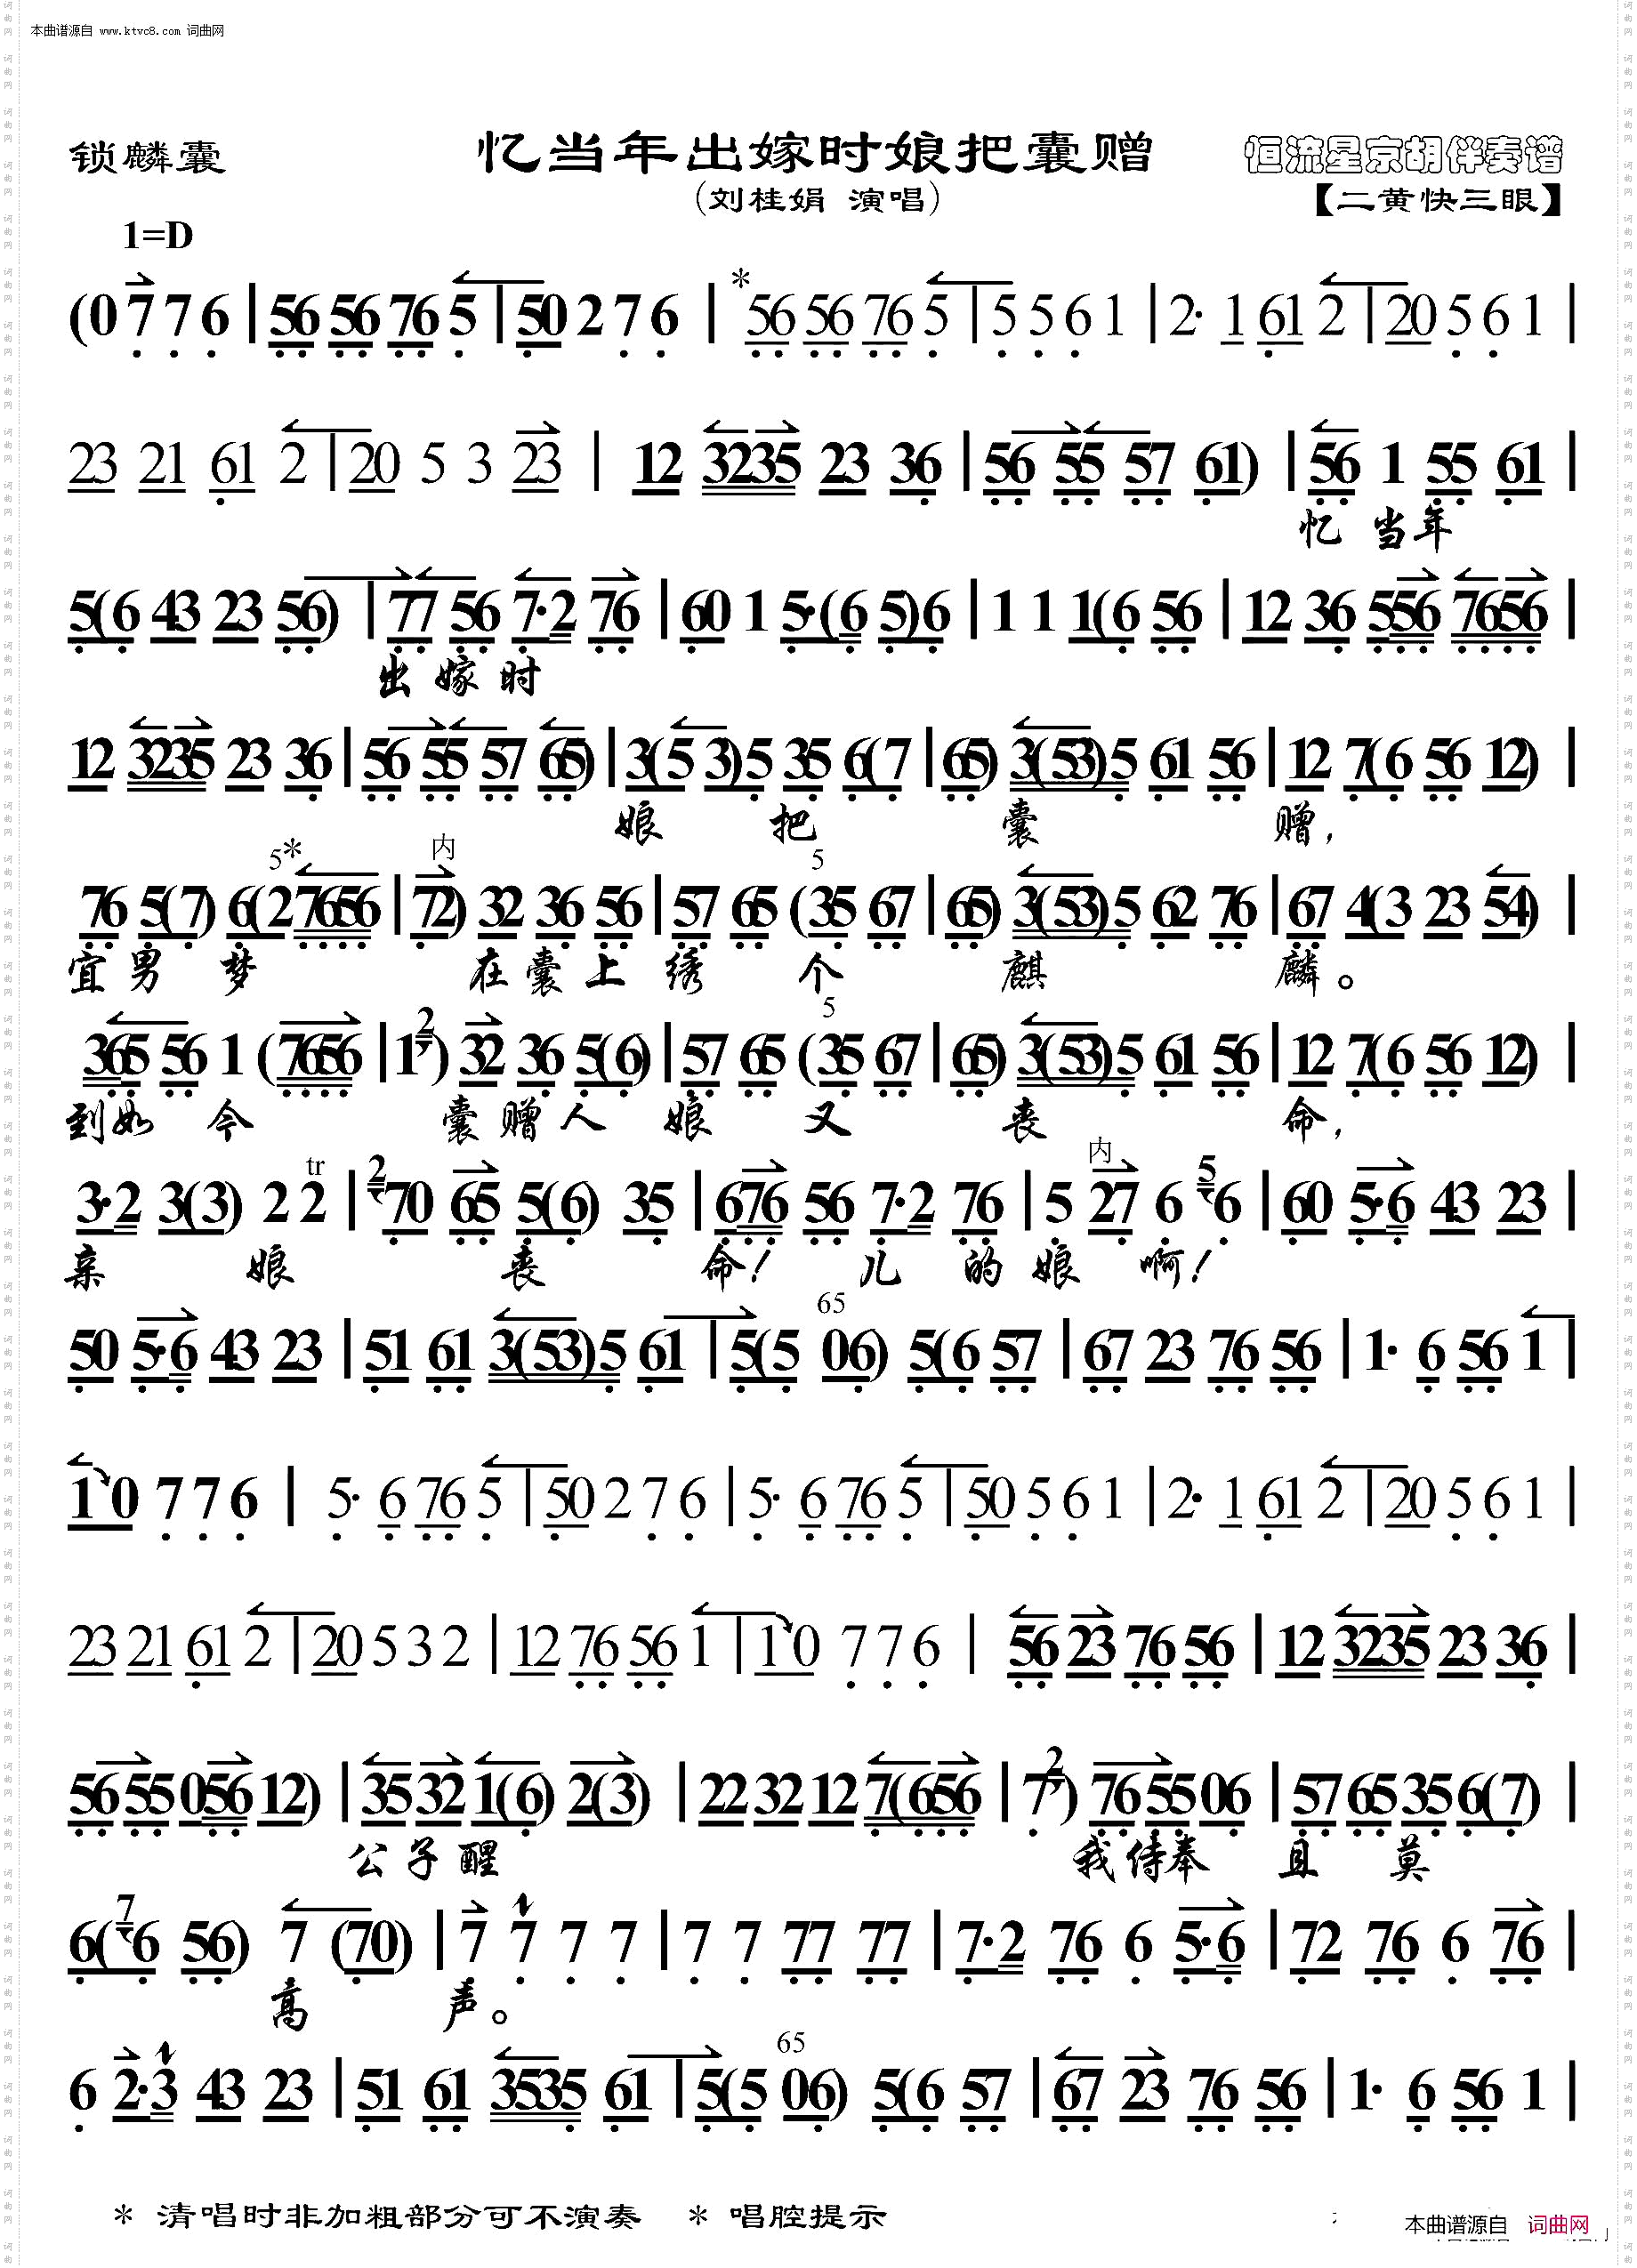 本曲谱源自 www.ktvc8.com 词曲网
锁麟囊 忆当年出嫁时娘把囊赠 恒流星京胡伴奏谱
(刘桂娟 演唱) 【二黄快三眼】
1=D
(0 7 7 6 | 56 56 76 5 | 50 2 7 6 | * 56 56 76 5 | 5 5 6 1 | 2· 1 61 2 | 20 5 6 1 |
23 21 61 2 | 20 5 3 23 | 12 3235 23 36 | 56 55 57 61) | 56 1 55 61 |
忆 当 年
5(6 43 23 56) | 77 56 7·2 76 | 60 1 5·(6 5)6 | 1 1 1(6 56 | 12 36 556 7656 |
出 嫁 时
12 3235 23 36 | 56 55 57 65) | 3(5 3)5 35 6(7 | 65) 3(53)5 61 56 | 12 7(6 56 12) |
娘 把 囊 赠,
5* 内 5
76 5(7) 6(2 7656 | 72) 32 36 56 | 57 65 (35 67 | 65) 3(53)5 62 76 | 67 4(3 23 54) |
宜 男 梦 在 囊 上 绣 个 麒 麟。
2 5
365 56 1 (7656 | 1 ) 32 36 5(6) | 57 65 (35 67 | 65) 3(53)5 61 56 | 12 7(6 56 12) |
到 如 今 囊 赠 人 娘 又 丧 命,
tr 2 内 5
3·2 3(3) 2 2 | 70 65 5(6) 35 | 676 56 7·2 76 | 5 27 6 6 | 60 5·6 43 23 |
亲 娘 丧 命! 儿 的 娘 啊!
65
50 5·6 43 23 | 51 61 3(53)5 61 | 5(5 06) 5(6 57 | 67 23 76 56 | 1· 6 56 1 |
1 0 7 7 6 | 5· 6 76 5 | 50 2 7 6 | 5· 6 76 5 | 50 5 6 1 | 2· 1 61 2 | 20 5 6 1 |
23 21 61 2 | 20 5 3 2 | 12 76 56 1 | 1 0 7 7 6 | 56 23 76 56 | 12 3235 23 36 |
2
56 55 056 12) | 35 32 1(6) 2(3) | 22 32 12 7(656 | 7 ) 76 55 06 | 57 65 35 6(7) |
公 子 醒 我 侍 奉 且 莫
7
6( 6 56) 7 (70) | 7 7 7 7 | 7 7 77 77 | 7·2 76 6 5·6 | 72 76 6 76 |
高 声。
65
6 2·3 43 23 | 51 61 3535 61 | 5(5 06) 5(6 57 | 67 23 76 56 | 1· 6 56 1 |
* 清唱时非加粗部分可不演奏 * 唱腔提示
本曲谱源自 词曲网